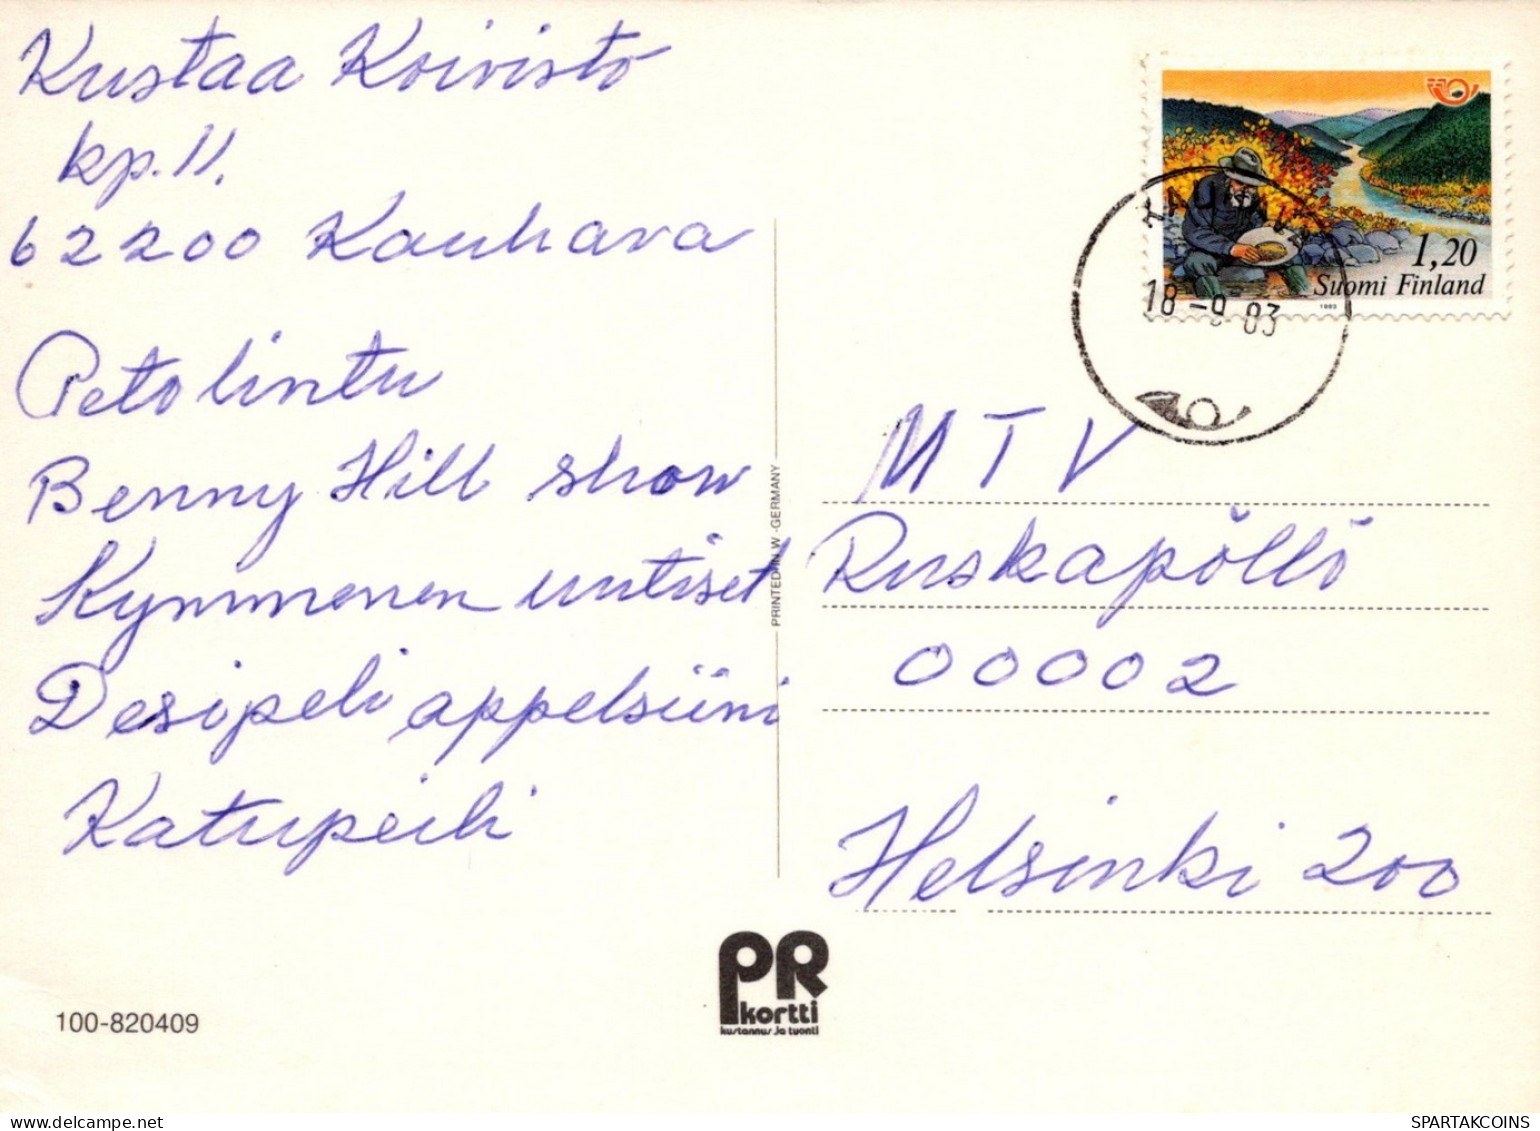 Kustaa Koivisto
kp. 11.
62200 Kauhava
Petolintu
Benny Hill show
Kymmenen uutiset
Desipeli appelsiini
Katupeili
1,20
Suomi Finland
1983
18 -9 83
MTV
Ruskapöllö
00002
Helsinki 200
PRINTED IN W.-GERMANY
PR
kortti
kustannus ja tuonti
100-820409
SPARTAKCOINS